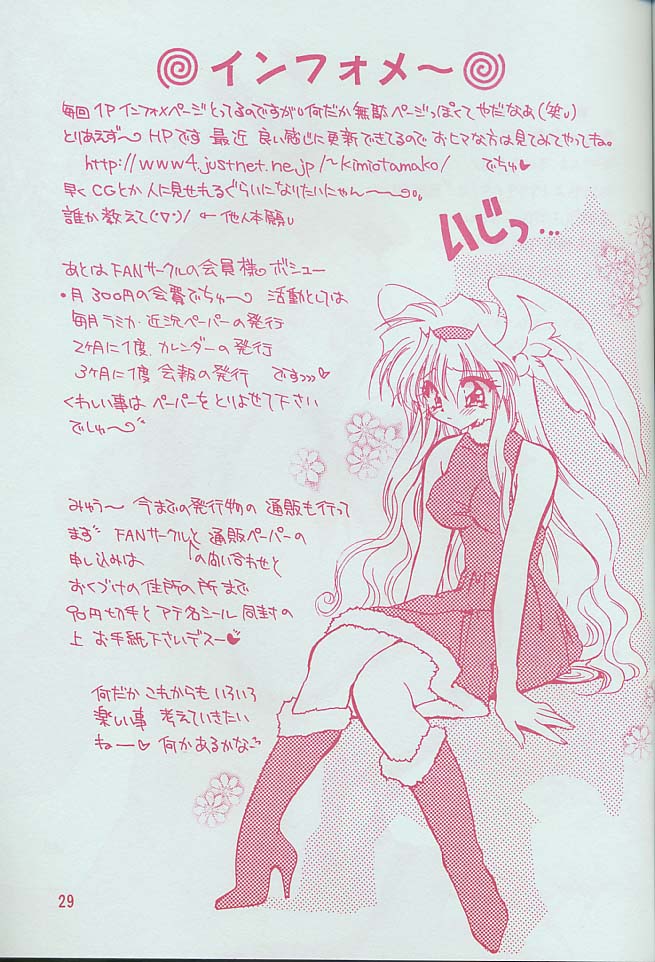 インフォメ〜
毎回 1P インフォメページとってるのですが何だか無駄ページっぽくてやだなあ(笑)
とりあえず〜 HPです 最近 良い感じに更新できてるので おヒマな方は見てみてやってね。
http://www4.justnet.ne.jp/~kimiotamako/ でちゅ♥
早く CGとか 人に見せもるぐらいになりたいにゃん〜〜。
誰か教えて(・▽・)/ ← 他人本願
いじっ…
あとは FANサークルの会員様 ボシュー
・月 300円の会費でちゅ〜 活動としては
毎月 ラミカ・近況ペーパーの発行
2ヶ月に1度 カレンダーの発行
3ヶ月に1度 会報の発行 ですっっっ♥
くわしい事は ペーパーをとりよせて下さい
でしゅ〜
みゅう〜 今までの発行物の 通販も行って
ます FANサークルと 通販ペーパーの
申し込みは の向い合わせと
おくづけの住所の所まで
90円切手と アテ名シール 同封の
上 お手紙下さいデスー♥
何だか これからも いろいろ
楽しい事 考えていきたい
ねー♥ 何かあるかな〜
29